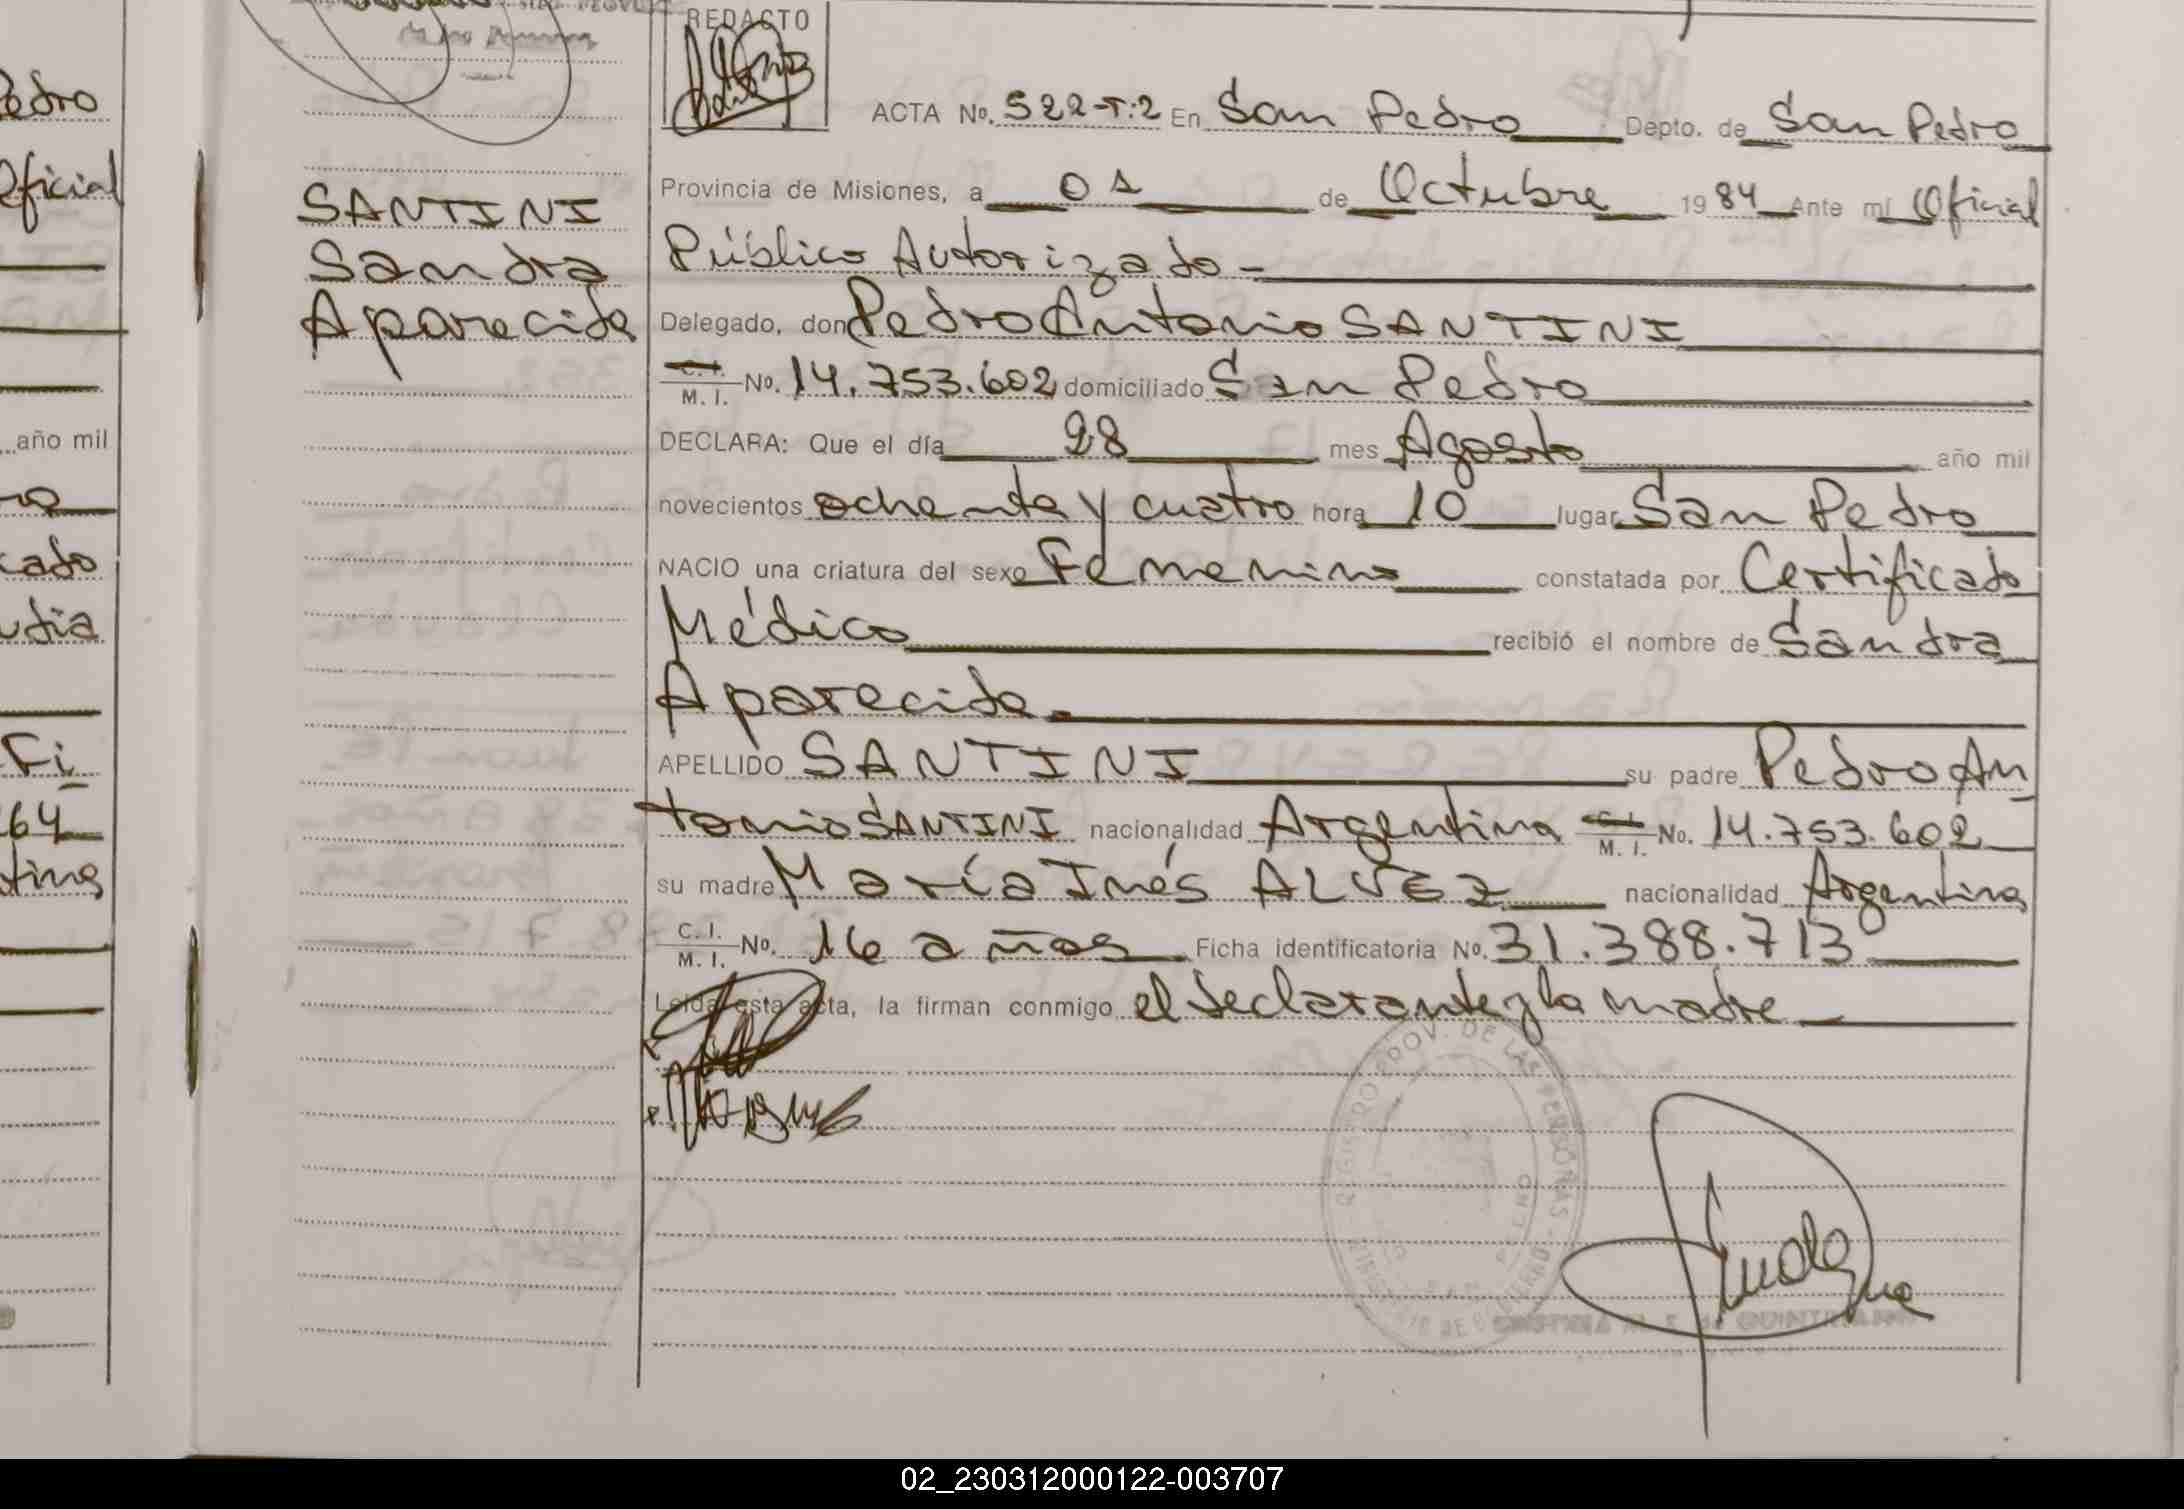 REDACTO
ACTA No. 522-T:2 En San Pedro Depto. de San Pedro
Provincia de Misiones, a 01 de Octubre 1984 Ante mí Oficial
Público Autorizado -
Delegado, don Pedro Antonio SANTINI
C. I. M. I. No. 14.753.602 domiciliado San Pedro
DECLARA: Que el día 28 mes Agosto año mil
novecientos ochenta y cuatro hora 10 lugar San Pedro
NACIO una criatura del sexo Femenino constatada por Certificado
Médico recibió el nombre de Sandra
Aparecida.
APELLIDO SANTINI su padre Pedro An
tonio SANTINI nacionalidad Argentina C. I. M. I. No. 14.753.602
su madre María Inés ALVEZ nacionalidad Argentina
C. I. M. I. No. 16 años Ficha identificatoria No. 31.388.713
Leída esta acta, la firman conmigo el declarante y la madre
SANTINI
Sandra
Aparecida
edro
Oficial
año mil
cado
udia
Fi
64
tina
REGISTRO PROV. DE LAS PERSONAS
MINISTERIO DE GOBIERNO
02_230312000122-003707